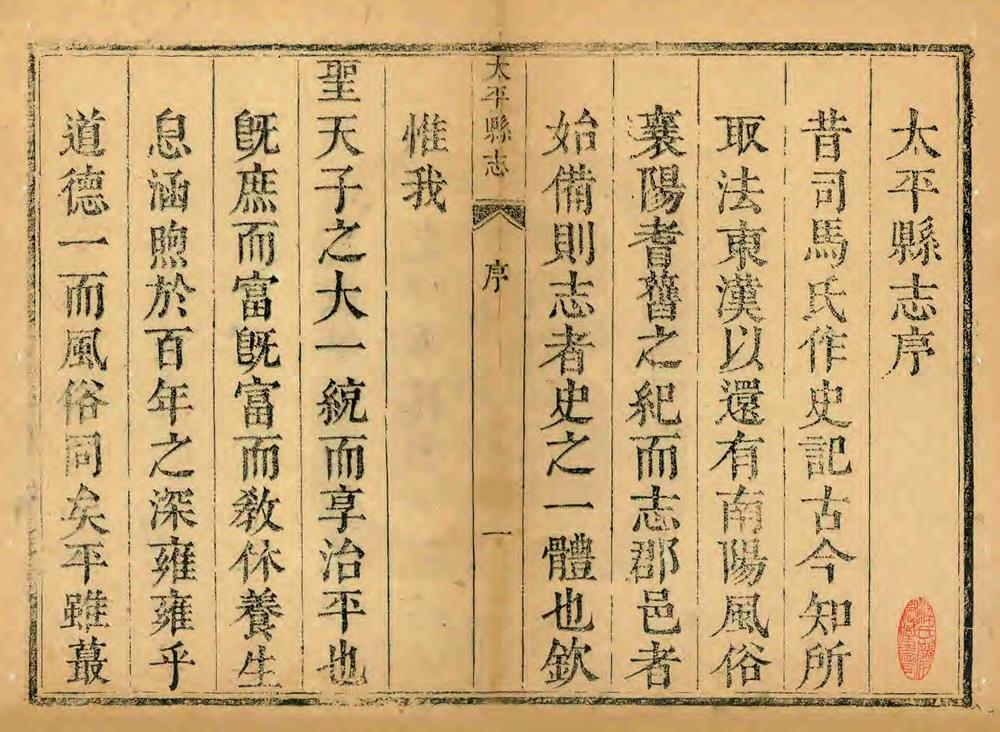 太平縣志序
昔司馬氏作史記古今知所
取法東漢以還有南陽風俗
襄陽耆舊之紀而志郡邑者
始備則志者史之一體也欽
惟我
太平縣志
序
一
聖天子之大一統而享治平也
旣庶而富旣富而敎休養生
息涵煦於百年之深雍雍乎
道德一而風俗同矣平雖蕞